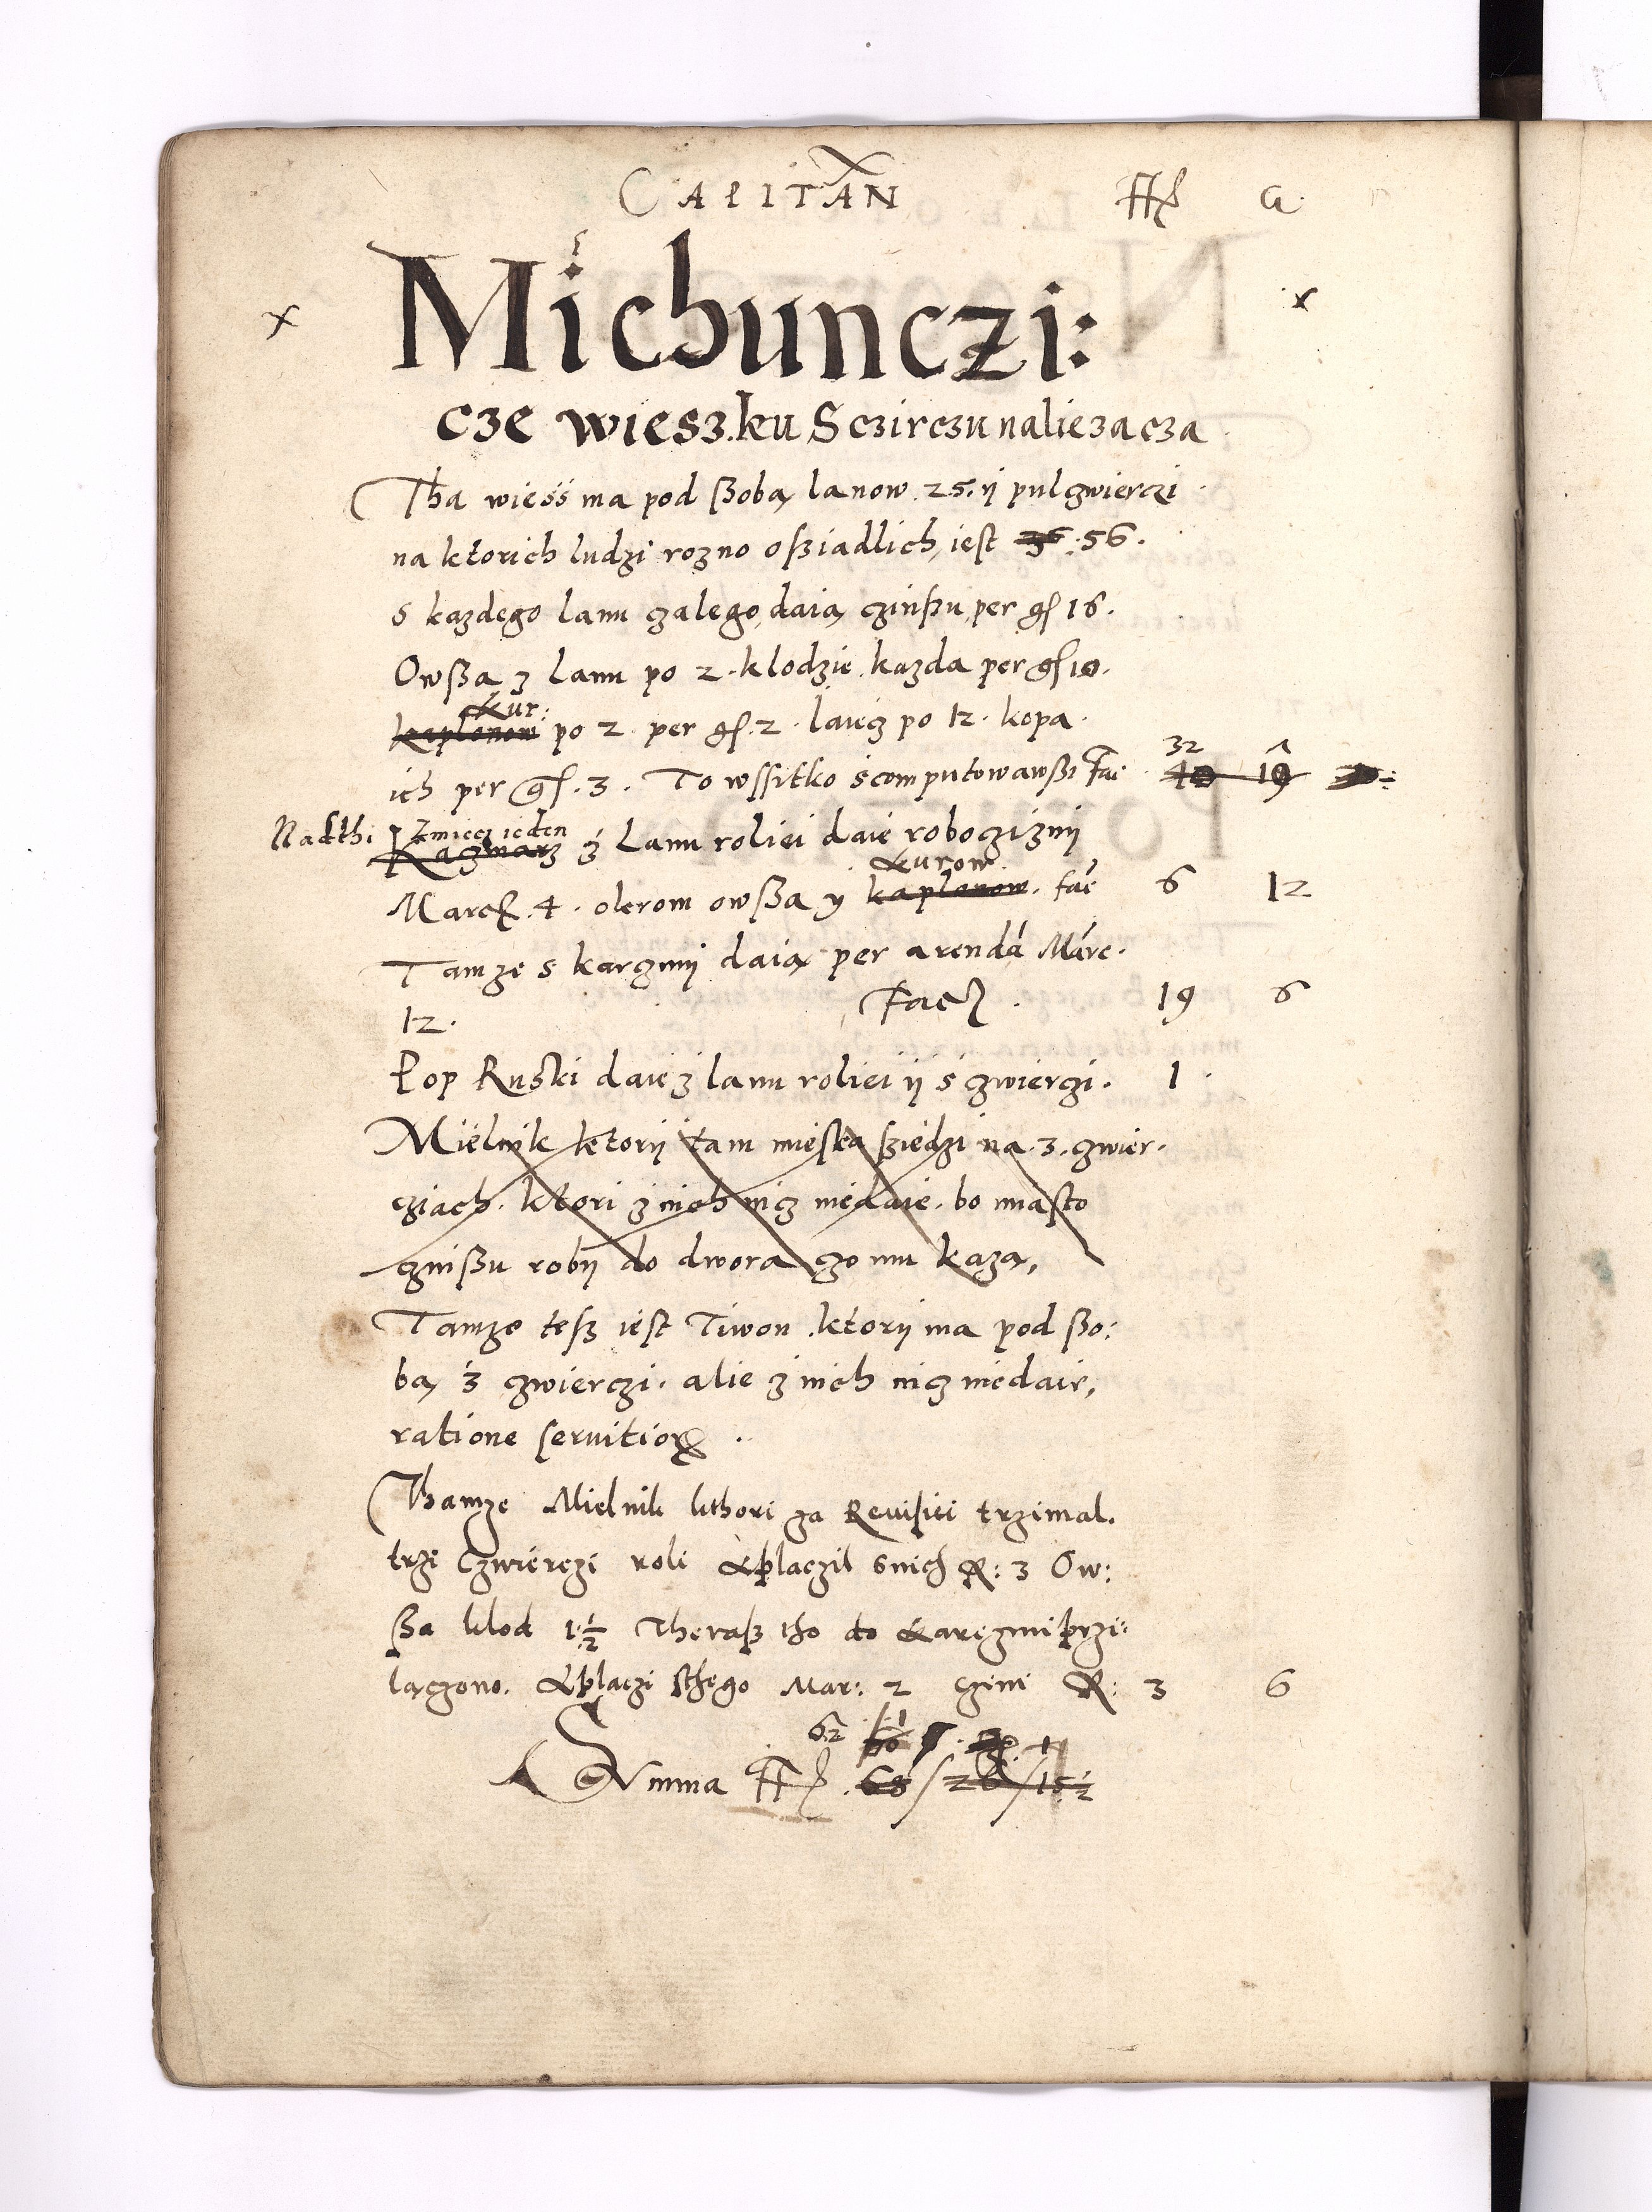 CAPITAN Fl G
Michunczi:
cze wiesz.ku Sczirczu naliezacza
Tha wieśś ma pod ßobą lanow 25. ij pulczwierczi
na ktorich ludzi rozno oßiadlich, iest 36. 56.
s kazdego lanu czalego, daią czinßu, per gs 16.
Owßa z lanu po 2. klodzie kazda per gs 10.
kur:
kaplonow po 2. per gs. 2. laiecz po 12. kopa
ich per gs. 3. To wssitko scomputowawßi fac 32
Nadthi Kmiecz ieden
Kaczmarz z Lanu roliei daie robocziznij
kurow
Marck. 4. oterom owßa y kaplonow. fac 6 12
Tamze s karczmij daią per arendą Marc.
12. Fac 19 6
Pop Ruski daie z lanu roliei ij s czwierczi. 1.
Mielnik ktorij tam mieska sziedzi na 3. czwier-
cziach. ktori z nich nicz niedaie. bo miasto
czinßu robij do dwora czo mu każą,
Tamze tesz iest Tiwon ktorij ma pod ßo:
bą 3 czwierczi. alie z nich nicz niedaie,
ratione servitior
Thamze Mielnik kthori za Revisiei trzimal.
trzi Czwierczi roli &placzil snich R: 3 Ow:
ßa klod 1 1/2 Theraß tho do karczmi przi:
lączono. &placzi sthego Mar: 2 czini R: 3 6
62
Summa Fl 68 / 26 / 15 1/2